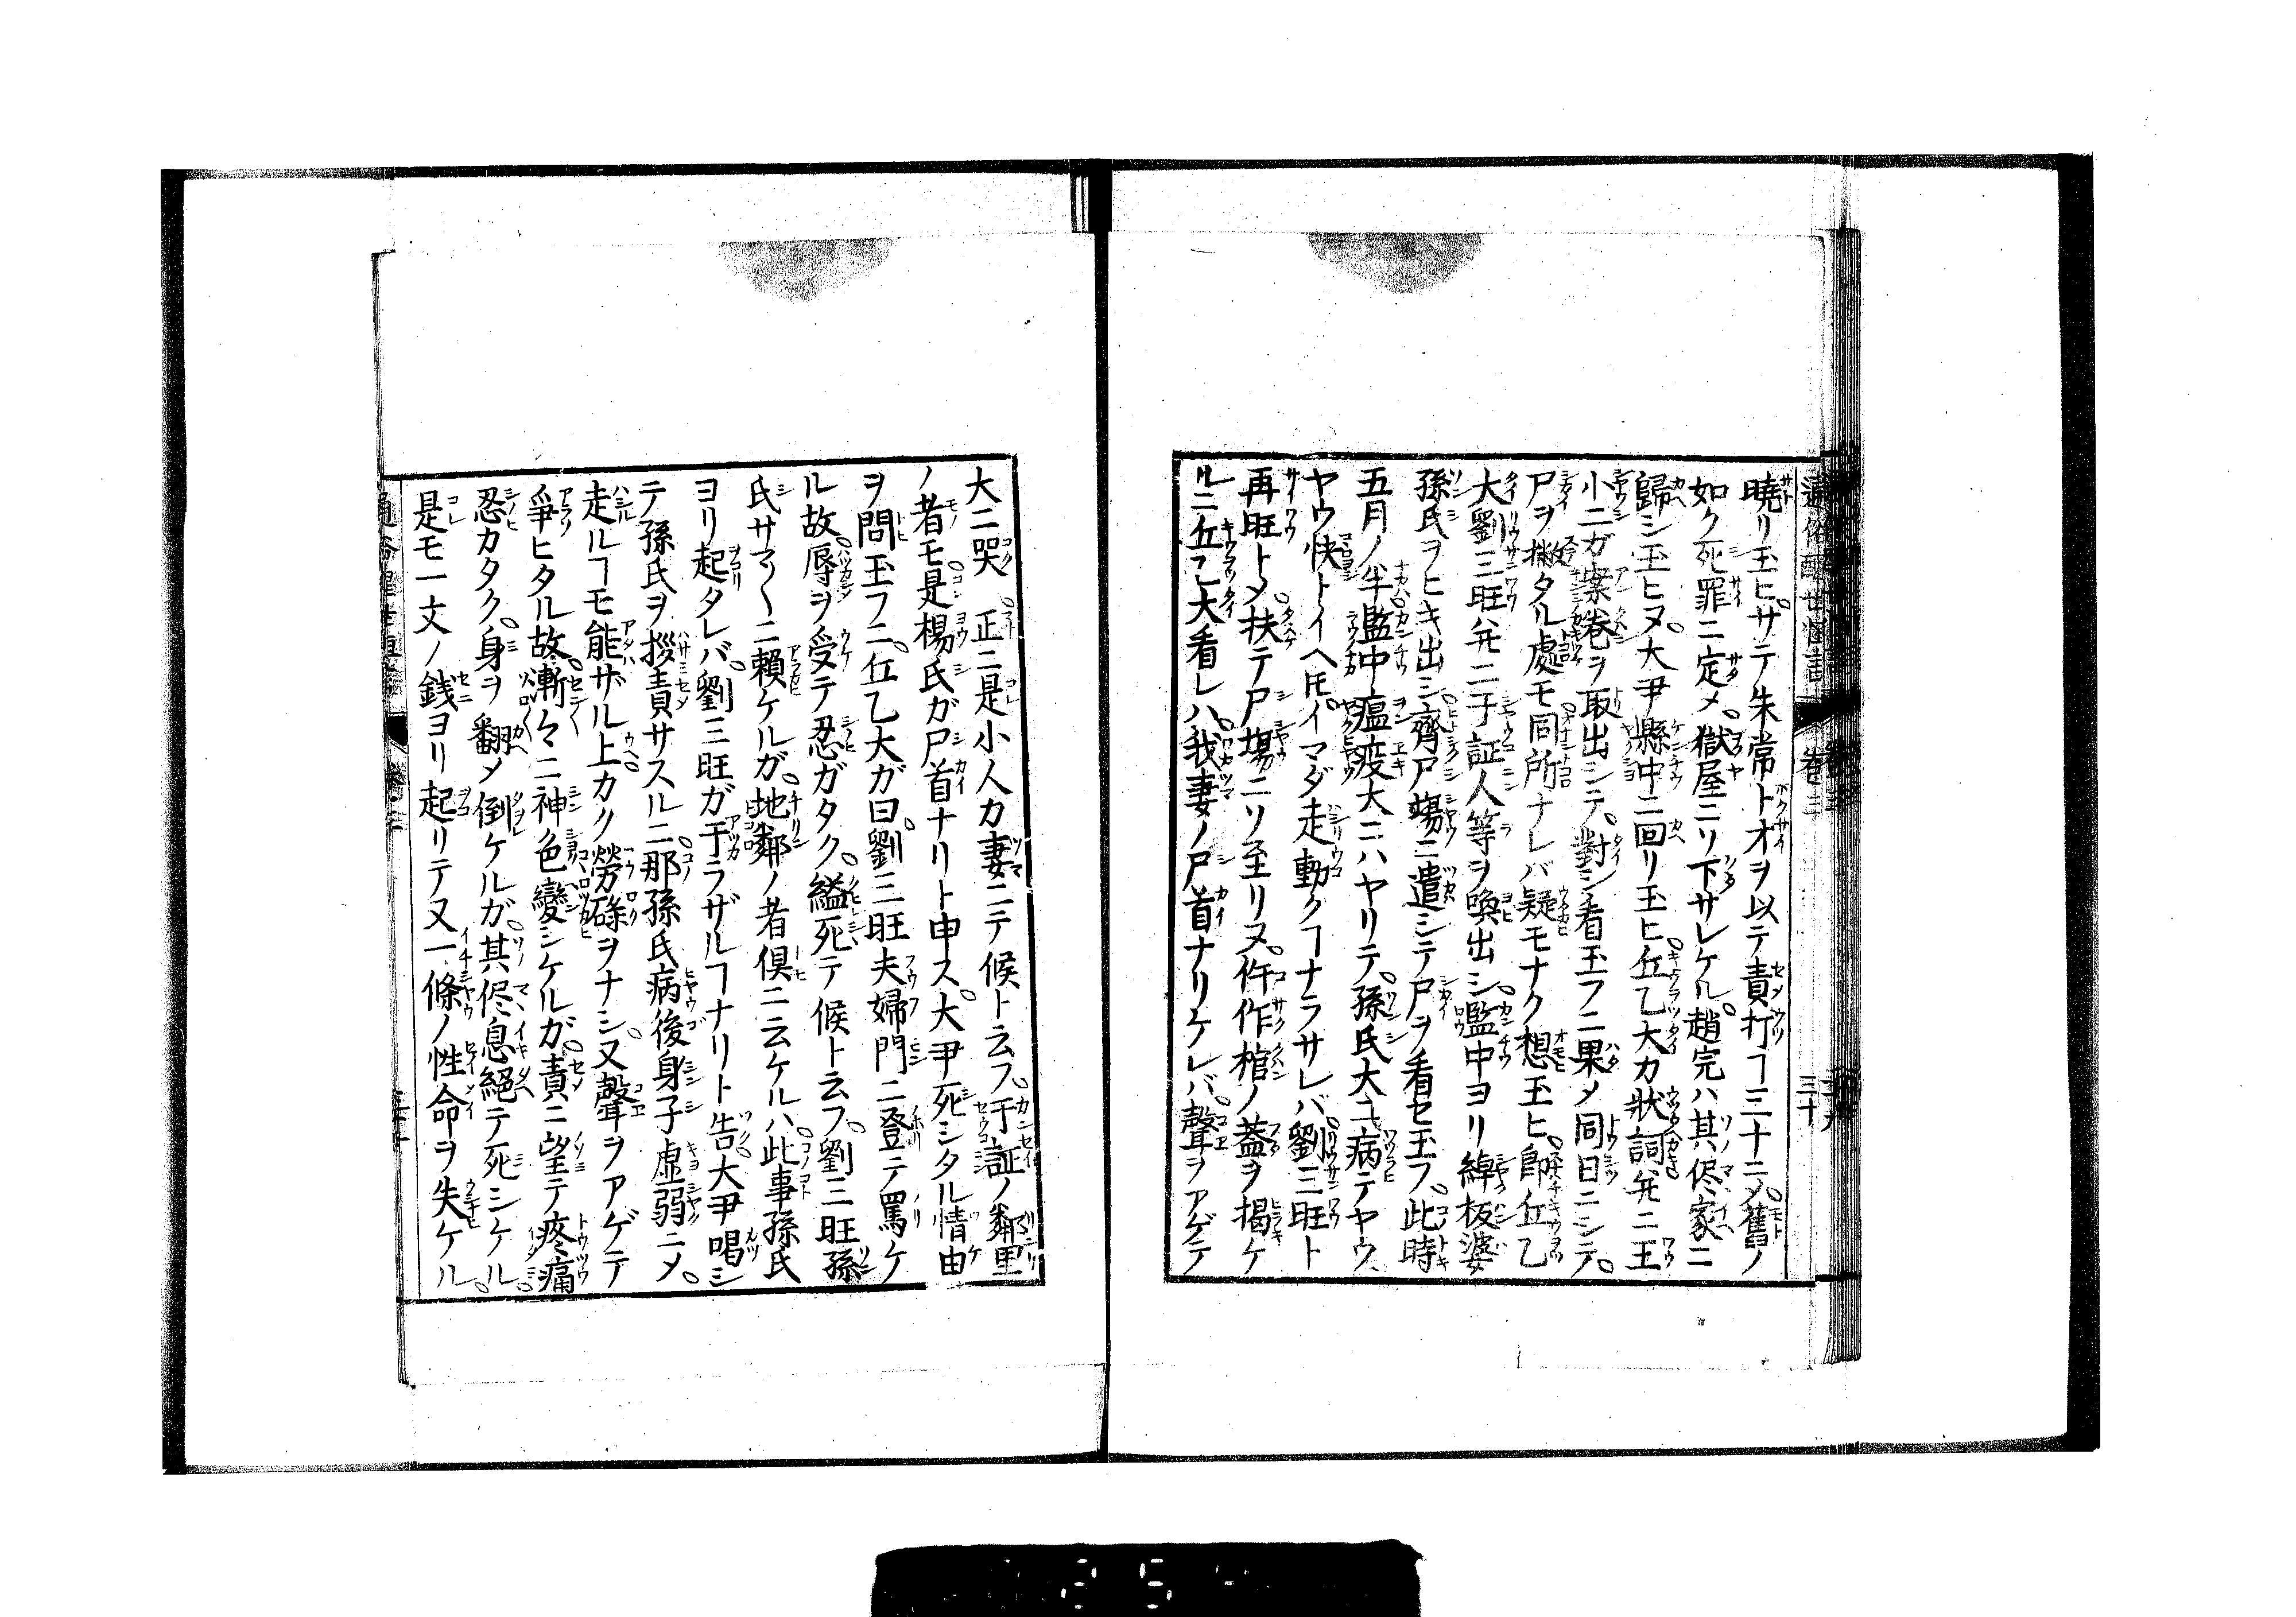 通俗醒世恒言 卷三 三十
曉リ玉ヒ。サテ朱常ト才ヲ以テ責打ヿ三十ニ〆。舊ノ
如ク死罪ニ定メ。獄屋ニソ下サレケル。趙完ハ其侭家ニ
歸シ玉ヒヌ。大尹縣中ニ回リ玉ヒ。丘乙大カ狀詞幷ニ王
小二ガ案卷ヲ取出シテ。對シ看玉フニ果〆同日ニシテ。
尸ヲ撇タル處モ同所ナレバ疑モナク想玉ヒ。郎丘乙
大劉三旺幷ニ干証人等ヲ喚出シ。監中ヨリ綽板婆
孫氏ヲヒキ出シ。齊尸塲ニ遣シテ尸ヲ看セ玉フ。此時
五月ノ半。監中瘟疫大ニハヤリテ。孫氏大ニ病テヤウ〳〵
ヤウ快トイヘ𪜈。イマダ走動クヿナラサレバ。劉三旺ト
再旺ト〆扶テ尸塲ニソ至リヌ。仵作棺ノ蓋ヲ揭ケ
ルニ丘乙大看レハ。我妻ノ尸首ナリケレバ。聲ヲアゲテ
大ニ哭。正ニ是小人カ妻ニテ候ト云フ。干証ノ鄰里
ノ者モ。是楊氏ガ尸首ナリト申ス。大尹死シタル情由
ヲ問玉フニ。丘乙大ガ曰。劉三旺夫婦門ニ登テ罵ケ
ル故。辱ヲ受テ忍ガタク。縊死テ候ト云フ。劉三旺孫
氏サマ〳〵ニ賴ケルガ。地鄰ノ者倶ニ云ケルハ。此事孫氏
ヨリ起タレバ。劉三旺ガ干ラザルヿナリト告。大尹喝シ
テ孫氏ヲ拶責サスルニ。那孫氏病後身子虛弱ニ〆。
走ルヿモ能ザル上。カク勞碌ヲナシ。又聲ヲアゲテ
爭ヒタル故。漸々ニ神色變シケルガ。責ニ望テ疼痛
忍カタク。身ヲ翻〆倒ケルガ。其侭息絕テ死シケル。
是モ一文ノ錢ヨリ起リテ又一條ノ性命ヲ失ケル。